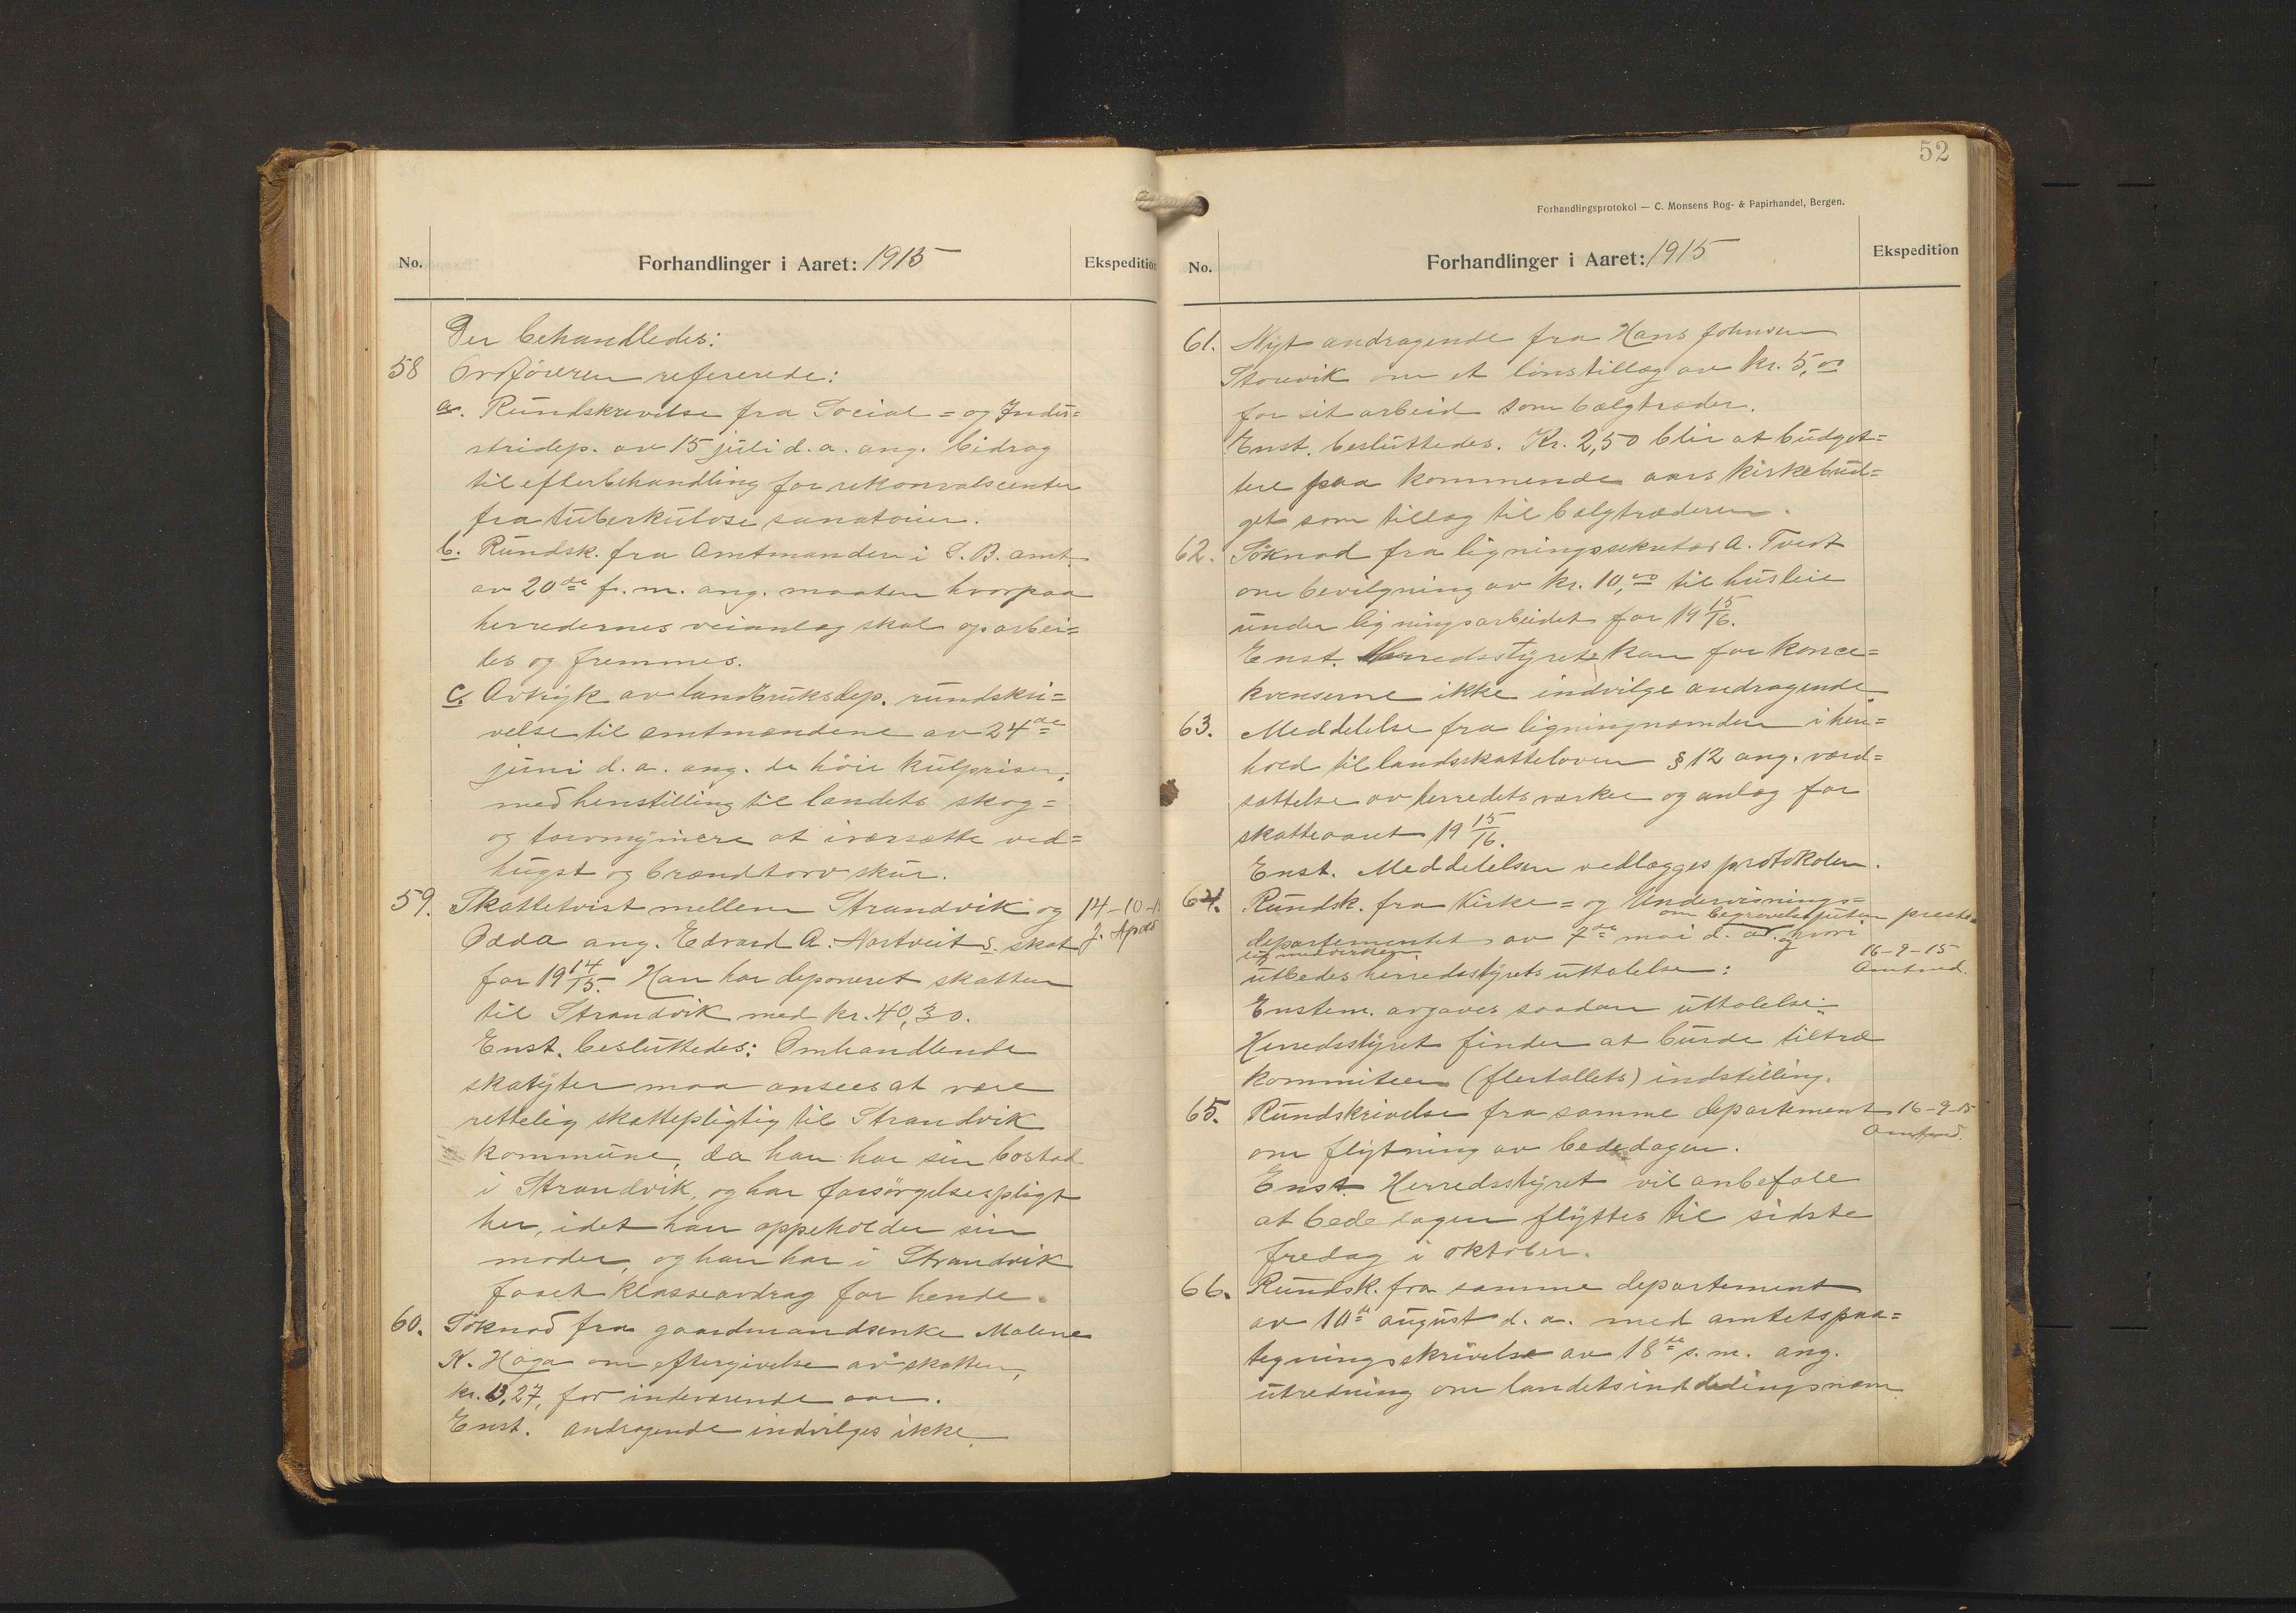 No.
Forhandlinger i Aaret: 1915
Ekspedition
Der behandledes:
58 Ordføreren refererede:
a. Rundskrivelse fra Social= og Indu=
stridep. av 15 juli d. a. ang. bidrag
til efterbehandling for rekonvalscenter
fra tuberkulose sanatorier.
b. Rundsk. fra Amtmanden i S. B. amt
av 20de f. m. ang. maaten hvorpaa
herredernes veianlæg skal oparbei=
des og fremmes.
c. Avtryk av landbruksdep. rundskri=
velse til amtmændene av 24de
juni d. a. ang. de høie kulpriser,
med henstilling til landets skog=
og torvmyreiere at iværsætte ved=
hugst og brændtorvskur.
59. Skattetvist mellem Strandvik og
Odda ang. Edvard A. Nortveits skat
for 1914/15. Han har deponeret skatten
til Strandvik med kr. 40,30.
Enst. besluttedes: Omhandlende
skatyter maa ansees at være
rettelig skattepligtig til Strandvik
kommune, da han har sin bostad
i Strandvik, og har forsørgelsespligt
her, idet han oppeholder sin
moder, og han har i Strandvik
faaet klasseavdrag for hende.
14-10-1
60. Søknad fra gaardmandsenke Malene
K. Haga om eftergivelse av skatten,
kr. 13,27, for indeværende aar.
Enst. andragende indvilges ikke.
52
Forhandlingsprotokol — C. Monsens Bog- & Papirhandel, Bergen.
No.
Forhandlinger i Aaret: 1915
Ekspedition
61. Nyt andragende fra Hans Johnsen
Storvik om et lønstillæg av kr. 5,00
for sit arbeid som bælgtræder.
Enst. besluttedes. Kr. 2,50 blir at budget=
tere paa kommende aars kirkebud=
get som tillæg til bælgtræderen.
62. Søknad fra ligningssekretær A. Tveit
om bevilgning av kr. 10,00 til husleie
under ligningsarbeidet for 1915/16.
Enst. Herredsstyret kan for konce=
kvenserne ikke indvilge andragende.
63. Meddelelse fra ligningnæmnden i hen=
hold til landsskatteloven § 12 ang. værd=
sættelse av herredets værker og anlæg for
skatteaaret 1915/16.
Enst. Meddelelsen vedlægges protokolen.
64. Rundsk. fra Kirke= og Undervisnings=
om begravelse uten preste=
departementet av 7de mai d. a. og hvori
lig medvirken,
utbedes herredsstyrets uttalelse:
16-9-15
Amtmd.
Enstem. avgaves saadan uttalelse:
Herredsstyret finder at burde tiltræ
kommiteen (flertallets) indstilling.
65. Rundskrivelse fra samme departement
om flytning av bededagen.
16-9-15
Amtmd.
Enst. Herredsstyret vil anbefale
at bededagen flyttes til sidste
fredag i oktober.
66. Rundsk. fra samme departement
av 10de august d. a. med amtets paa=
tegningsskrivelse av 18de s. m. ang.
utredning om landets inddelingsnavn